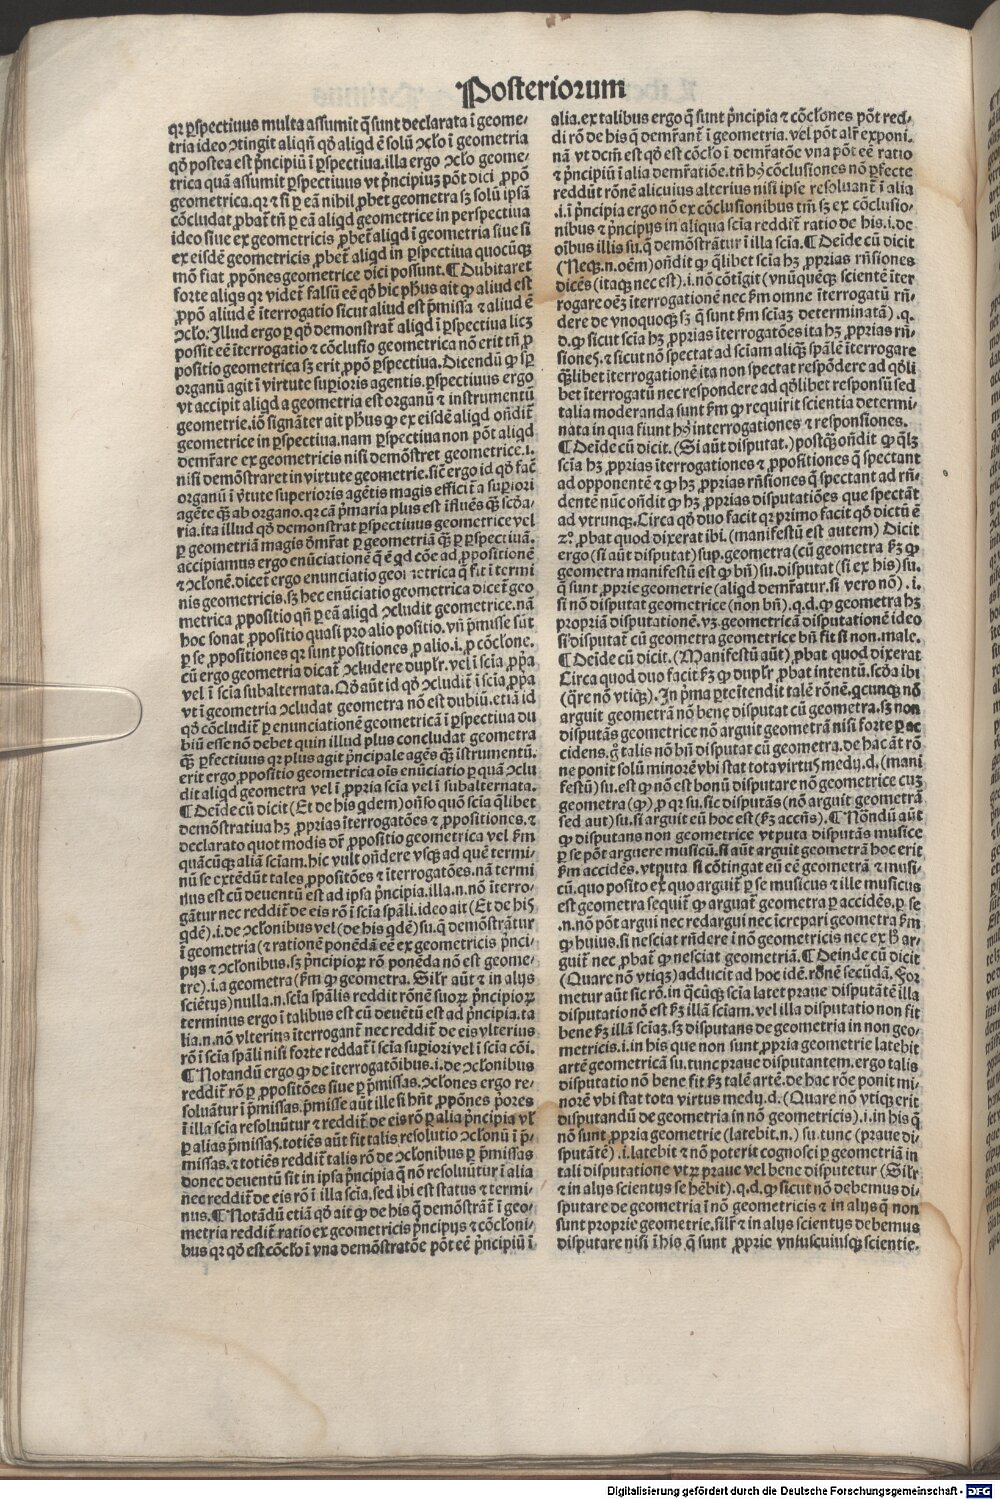 Posteriorum
qr ꝑspectiuus multa assumit q̃ sunt declarata ĩ geome-
tria ideo ↄtingit aliqñ qđ aliqd ẽ solũ ↄclo ĩ geometria
qđ postea est p̃ncipiũ ĩ ꝑspectiua. illa ergo ↄclo geome-
trica quã assumit ꝑspectiuus vt p̃ncipiuꝫ põt dici ꝓpõ
geometrica. qr ⁊ si ꝑ eã nihil ꝓbet geometra sꝫ solũ ipsã
cõcludat. ꝓbat tñ ꝑ eã aliqd geometrice in perspectiua
ideo siue ex geometricis ꝓbet̃ aliqd ĩ geometria siue si
ex eisdẽ geometricis ꝓbet̃ aliqd in ꝑspectiua quocũqꝫ
mõ fiat ꝓpões geometrice dici possunt. ¶ Dubitaret
forte aliqs qr videt̃ falsũ eẽ qđ hic pħus ait ꝙ aliud est
ꝓpõ aliud ẽ ĩterrogatio sicut aliud est p̃missa ⁊ aliud ẽ
ↄclo. Illud ergo ꝑ qđ demonstrat̃ aliqd ĩ ꝑspectiua licꝫ
possit eẽ ĩterrogatio ⁊ cõclusio geometrica nõ erit tñ ꝓ
positio geometrica sꝫ erit ꝓpõ ꝑspectiua. Dicendũ ꝙ sp̃
organũ agit ĩ virtute suꝑioris agentis. ꝑspectiuus ergo
vt accipit aliqd a geometria est organũ ⁊ instrumentũ
geometrie. iõ signãter ait pħus ꝙ ex eisdẽ aliqd oñdit̃
geometrice in ꝑspectiua. nam ꝑspectiua non põt aliqd
demr̃are ex geometricis nisi demõstret geometrice. i.
nisi demõstraret in virtute geometrie. sic̃ ergo id qđ fac̃
organũ ĩ ꝟtute superioris agẽtis magis effici t̃ a suꝑiori
agẽte q̃ꝫ ab organo. qr cã p̃maria plus est ĩfluẽs q̃ꝫ scđa-
ria. ita illud qđ demonstrat ꝑspectiuus geometrice vel
ꝑ geometriã magis õmr̃at ꝑ geometriã q̃ꝫ ꝑ ꝑspectiuã.
accipiamus ergo enũciationẽ q̃ ẽ qd cõe ad ꝓpositionẽ
⁊ ↄclonẽ. dicet̃ ergo enunciatio geometrica q̃ fit ĩ termi
nis geometricis. sꝫ hec enũciatio geometrica dicet̃ geo
metrica ꝓpositio qñ ꝑ eã aliqd ↄcludit geometrice. nã
hoc sonat ꝓpositio quasi pro alio positio. vñ p̃misse sũt
ꝑ se ꝓpositiones qr sunt positiones ꝓ alio. i. ꝓ cõclone.
cũ ergo geometria dicat̃ ↄcludere duplr̃. vel ĩ scĩa ꝓpa
vel ĩ scĩa subalternata. Qđ aũt id qđ ↄcludit̃ ĩ scĩa ꝓpa
vt ĩ geometria ↄcludat geometra nõ est dubiũ. etiã id
qđ cõcludit̃ ꝑ enunciationẽ geometricã ĩ ꝑspectiua du
biũ esse nõ debet quin illud plus concludat geometra
q̃ꝫ ꝑfectiuus qr plus agit p̃ncipale agẽs q̃ꝫ ĩstrumentũ.
erit ergo ꝓpositio geometrica oĩs enũciatio ꝑ quã ↄclu
dit aliqd geometra vel ĩ ꝓpria scĩa vel ĩ subalternata.
¶ Deĩde cũ dicit (Et de his qdem) oñso quo scĩa q̃libet
demõstratiua hꝫ ꝓprias ĩterrogatões ⁊ ꝓpositiones. ⁊
declarato quot modis dr̃ ꝓpositio geometrica vel ẜm
quãcũqꝫ aliã scĩam. hic vult oñdere vsqꝫ ad quẽ termi-
nũ se extẽdũt tales ꝓpositões ⁊ ĩterrogatões. nã termi
nus est cũ deuentũ est ad ipsa p̃ncipia. illa. n. nõ ĩterro-
gãtur nec reddit̃ de eis rõ ĩ scĩa spãli. ideo ait (Et de hiſ
qdẽ) .i. de ↄclonibus vel (de his qdẽ) su. q̃ demõstrãtur
ĩ geometria (⁊ rationẽ ponẽdã eẽ ex geometricis p̃nci-
pijs ⁊ ↄclonibus. sꝫ p̃ncipioꝝ rõ ponẽda nõ est geome-
tre) .i. a geometra (ẜm ꝙ geometra. Silr̃ aũt ⁊ in alijs
sciẽtijs) nulla. n. scĩa spãlis reddit rõnẽ suoꝝ p̃ncipioꝝ
terminus ergo ĩ talibus est cũ deuẽtũ est ad p̃ncipia. ta
lia. n. nõ vlterius ĩterrogant̃ nec reddit̃ de eis vlterius
rõ ĩ scĩa spãli nisi forte reddat̃ ĩ scĩa suꝑiori vel ĩ scĩa cõi.
¶ Notandũ ergo ꝙ de ĩterrogatõibus. i. de ↄclonibus
reddit̃ rõ ꝑ ꝓpositões siue ꝑ p̃missas. ↄclones ergo re-
soluãtur ĩ p̃missas. p̃misse aũt ille si hñt ꝓpões p̃ores
ĩ illa scĩa resoluũtur ⁊ reddit̃ de eis rõ ꝑ alia p̃ncipia vl̃
ꝑ alias p̃missaſ. totiẽs aũt fit talis resolutio ↄclonũ ĩ p̃-
missas. ⁊ totiẽs reddit̃ talis rõ de ↄclonibus ꝑ p̃missas
donec deuentũ sit in ipsa p̃ncipia q̃ nõ resoluũtur ĩ alia
nec reddit̃ de eis rõ ĩ illa scĩa. sed ibi est status ⁊ termi-
nus. ¶ Notãdũ etiã qđ ait ꝙ de his q̃ demõstrãt̃ ĩ geo-
metria reddit̃ ratio ex geometricis p̃ncipijs ⁊ cõcloni-
bus qr qđ est cõclo ĩ vna demõstratõe põt eẽ p̃ncipiũ ĩ
alia. ex talibus ergo q̃ sunt p̃ncipia ⁊ cõclones põt red-
di rõ de his q̃ demr̃ant̃ ĩ geometria. vel põt alr̃ exponi.
nã vt dcm̃ est qđ est cõclo ĩ demr̃atõe vna põt eẽ ratio
⁊ p̃ncipiũ ĩ alia demr̃atiõe. tñ hꝰ cõclusiones nõ ꝑfecte
reddũt rõnẽ alicuius alterius nisi ipse resoluant̃ ĩ alia
.i. ĩ p̃ncipia ergo nõ ex cõclusionibus tm̃ sꝫ ex cõclusio-
nibus ⁊ p̃ncipijs in aliqua scĩa reddit̃ ratio de his. i. de
oĩbus illis su. q̃ demõstrãtur ĩ illa scĩa. ¶ Deĩde cũ dicit
(Neqꝫ. n. oẽm) oñdit ꝙ q̃libet scĩa hꝫ ꝓprias rñsiones
dicẽs (itaqꝫ nec est) .i. nõ cõtĩgit (vnũquẽqꝫ scientẽ ĩter
rogare oẽꝫ ĩterrogationẽ nec ẜm omne ĩterrogatũ rñ-
dere de vnoquoqꝫ sꝫ q̃ sunt ẜm scĩaꝫ determinatã) . q.
d. ꝙ sicut scĩa hꝫ ꝓprias ĩterrogatões ita hꝫ ꝓprias rñ-
sioneſ. ⁊ sicut nõ spectat ad sciam aliq̃ꝫ spãlẽ ĩterrogare
q̃ꝫlibet iterrogationẽ ita non spectat respõdere ad qđli
bet ĩterrogatũ nec respondere ad qđlibet responsũ sed
talia moderanda sunt ẜm ꝙ requirit scientia determi-
nata in qua fiunt hꝰ interrogationes ⁊ responsiones.
¶ Deĩde cũ dicit. (Si aũt disputat.) postq̃ꝫ oñdit ꝙ q̃lꝫ
scĩa hꝫ ꝓprias ĩterrogationes ⁊ ꝓpositiones q̃ spectant
ad opponentẽ ⁊ ꝙ hꝫ ꝓprias rñsiones q̃ spectant ad rñ-
dentẽ nũc oñdit ꝙ hꝫ ꝓprias disputatiões que spectãt
ad vtrunqꝫ. Circa qđ duo facit qr primo facit qđ dictũ ẽ
2º ꝓbat quod dixerat ibi. (manifestũ est autem) Dicit
ergo (si aũt disputat) sup. geometra (cũ geometra ẜꝫ ꝙ
geometra manifestũ est ꝙ bñ) su. disputat (si ex his) su.
q̃ sunt ꝓprie geometrie (aliqd demr̃atur. si vero nõ) . i.
si nõ disputat geometrice (non bñ). q. d. ꝙ geometra hꝫ
propriã disputationẽ. vꝫ. geometricã disputationẽ ideo
si disputat̃ cũ geometra geometrice bñ fit si non. male.
¶ Deĩde cũ dicit. (Manifestũ aũt) ꝓbat quod dixerat
Circa quod duo facit ẜꝫ ꝙ duplr̃ ꝓbat intentũ. scđa ibi
(q̃re nõ vtiqꝫ) . In p̃ma ꝑte ĩtendit talẽ rõnẽ. qcunqꝫ nõ
arguit geometrã nõ bene disputat cũ geometra. sꝫ non
disputãs geometrice nõ arguit geometrã nisi forte ꝑ ac
cidens. g̊ talis nõ bñ disputat cũ geometra. de hac ãt rõ
ne ponit solũ minorẽ vbi stat tota virtuſ medij. d. (mani
festũ) su. est ꝙ nõ est bonũ disputare nõ geometrice cuꝫ
geometra (ꝙ) .p qr su. sic disputãs (nõ arguit geometrã
sed aut) su. si arguit eũ hoc est (ẜꝫ accñs). ¶ Nõndũ aũt
ꝙ disputans non geometrice vtputa disputãs musice
ꝑ se põt arguere musicũ. si aũt arguit geometrã hoc erit
ẜm accidẽs. vtputa si cõtingat eũ eẽ geometrã ⁊ musi-
cũ. quo posito ex quo arguit̃ ꝑ se musicus ⁊ ille musicus
est geometra sequit̃ ꝙ arguat̃ geometra ꝑ accidẽs. ꝑ se
.n. nõ põt argui nec redargui nec ĩcrepari geometra ẜm
ꝙ huius. si nesciat rñdere ĩ nõ geometricis nec ex h̊ ar-
guit̃ nec ꝓbat̃ ꝙ nesciat geometriã. ¶ Deinde cũ dicit
(Quare nõ vtiqꝫ) adducit ad hoc idẽ. rõnẽ secũdã. For
metur aũt sic rõ. in q̃cũqꝫ scĩa latet praue disputãtẽ illa
disputatio nõ est ẜꝫ illã sciam. vel illa disputatio non fit
bene ẜꝫ illã scĩaꝫ. sꝫ disputans de geometria in non geo-
metricis. i. in his que non sunt ꝓpria geometrie latebit
artẽ geometricã su. tunc praue disputantem. ergo talis
disputatio nõ bene fit ẜꝫ talẽ artẽ. de hac rõe ponit mi-
norẽ vbi stat tota virtus medij. d. (Quare nõ vtiqꝫ erit
disputandũ de geometria in nõ geometricis) .i. in his q̃
nõ sunt ꝓpria geometrie (latebit. n.) su. tunc (praue di-
sputãtẽ) . i. latebit ⁊ nõ poterit cognosci ꝑ geometriã in
tali disputatione vtꝝ praue vel bene disputetur (Silr̃
⁊ in alijs scientijs se hẽbit). q. d. ꝙ sicut nõ debemus di-
sputare de geometria ĩ nõ geometricis ⁊ in alijs q̃ non
sunt proprie geometrie. silr̃ ⁊ in alijs scientijs debemus
disputare nisi ĩ his q̃ sunt ꝓprie vniuscuiusqꝫ scientie.
Digitalisierung gefördert durch die Deutsche Forschungsgemeinschaft - DFG